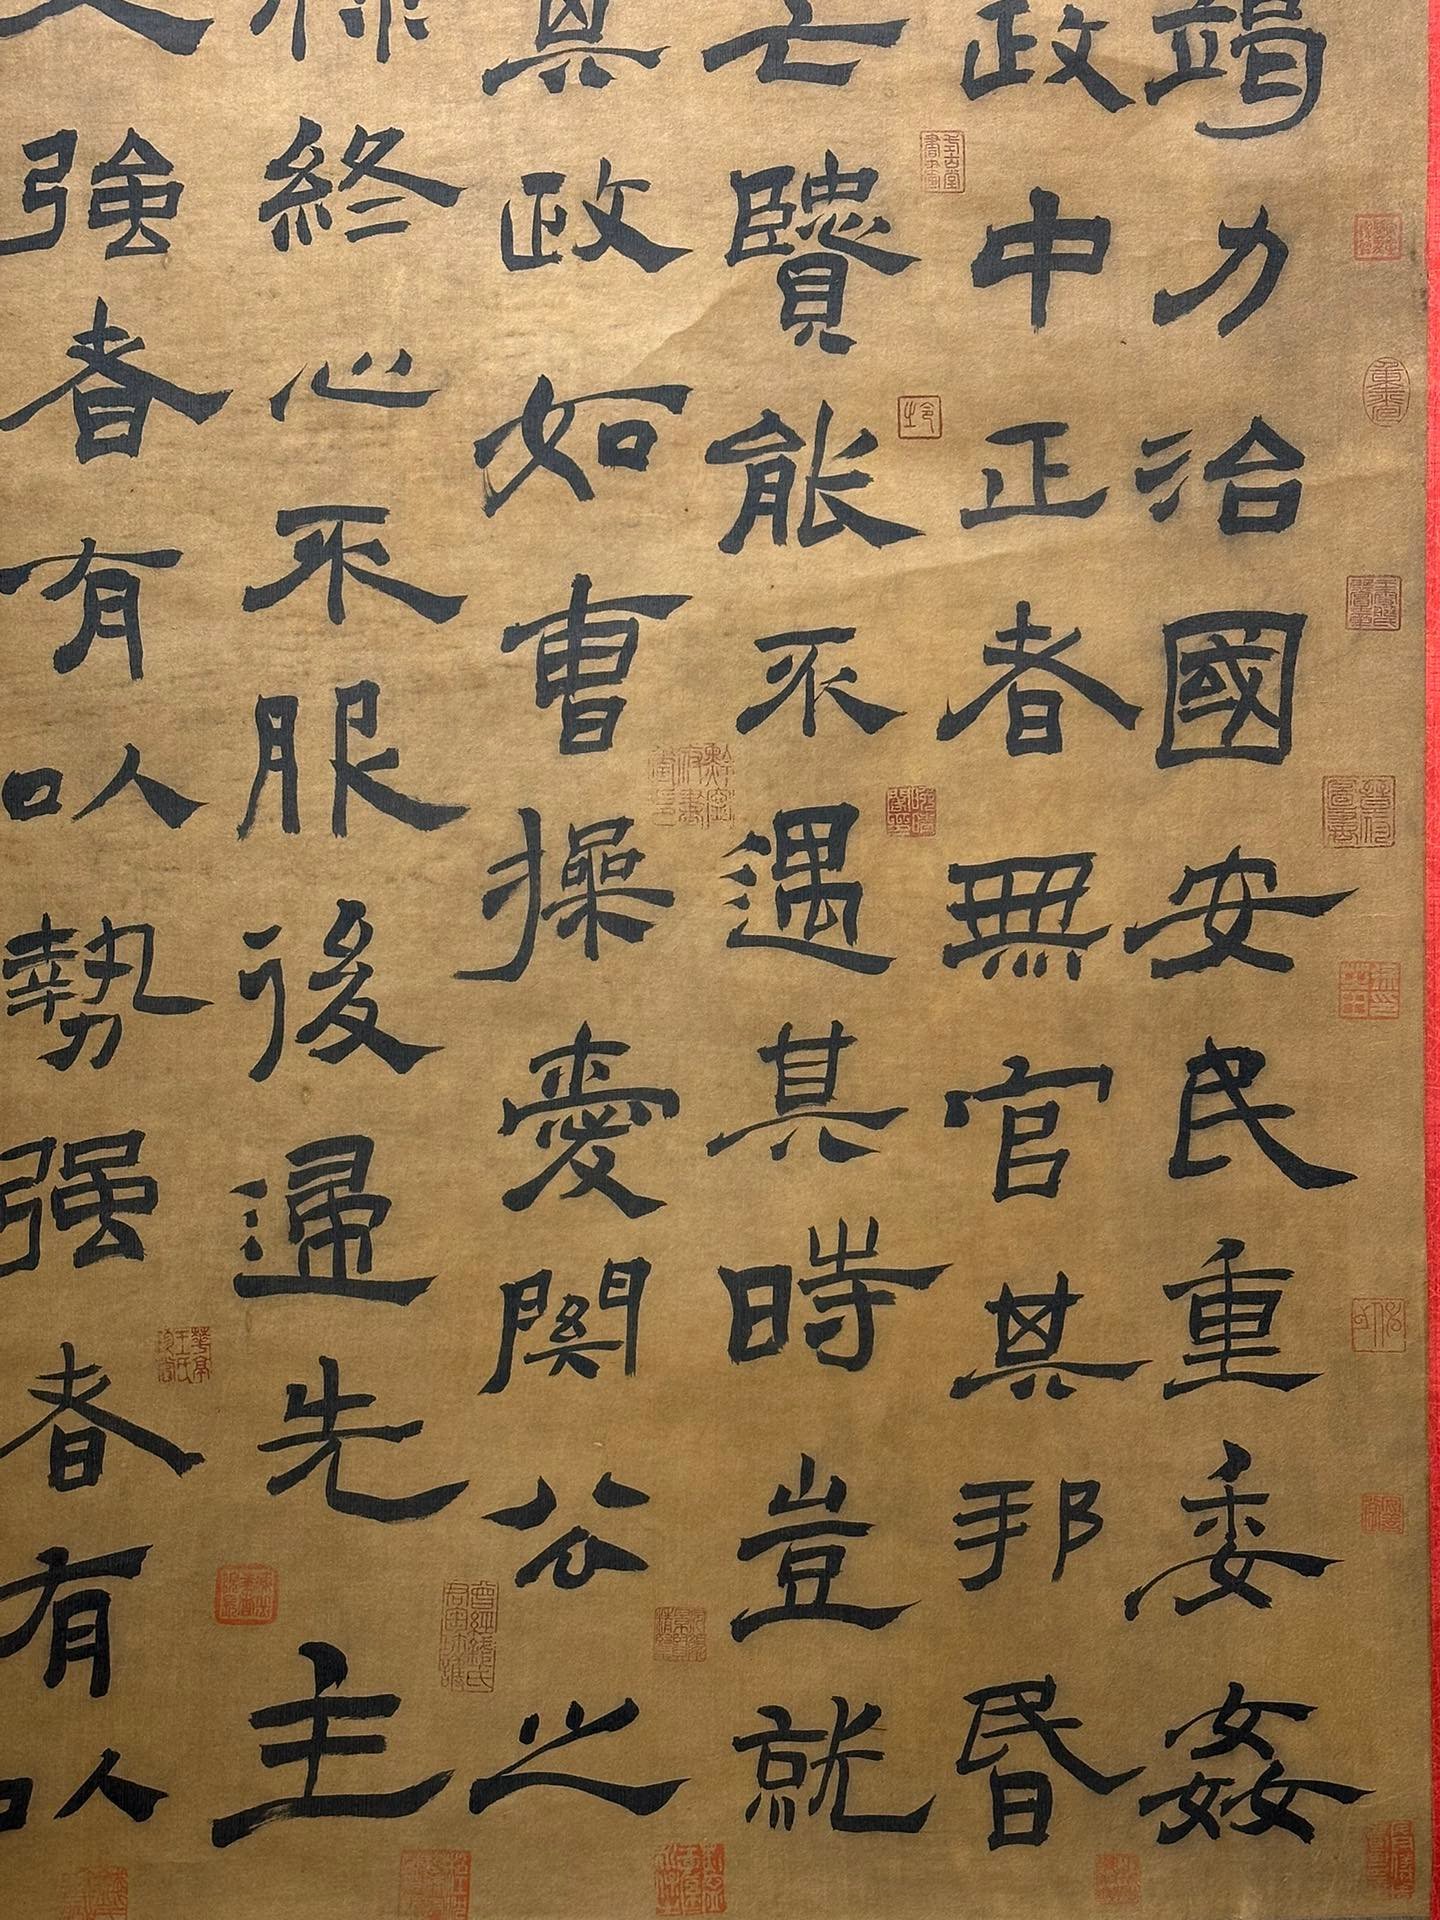 竭力治國安民重委姦
政中正者無官其邦昏
亡賢能不遇其時豈就
其政如曹操愛關公之
終心不服後歸先主
強者有以勢强者有以